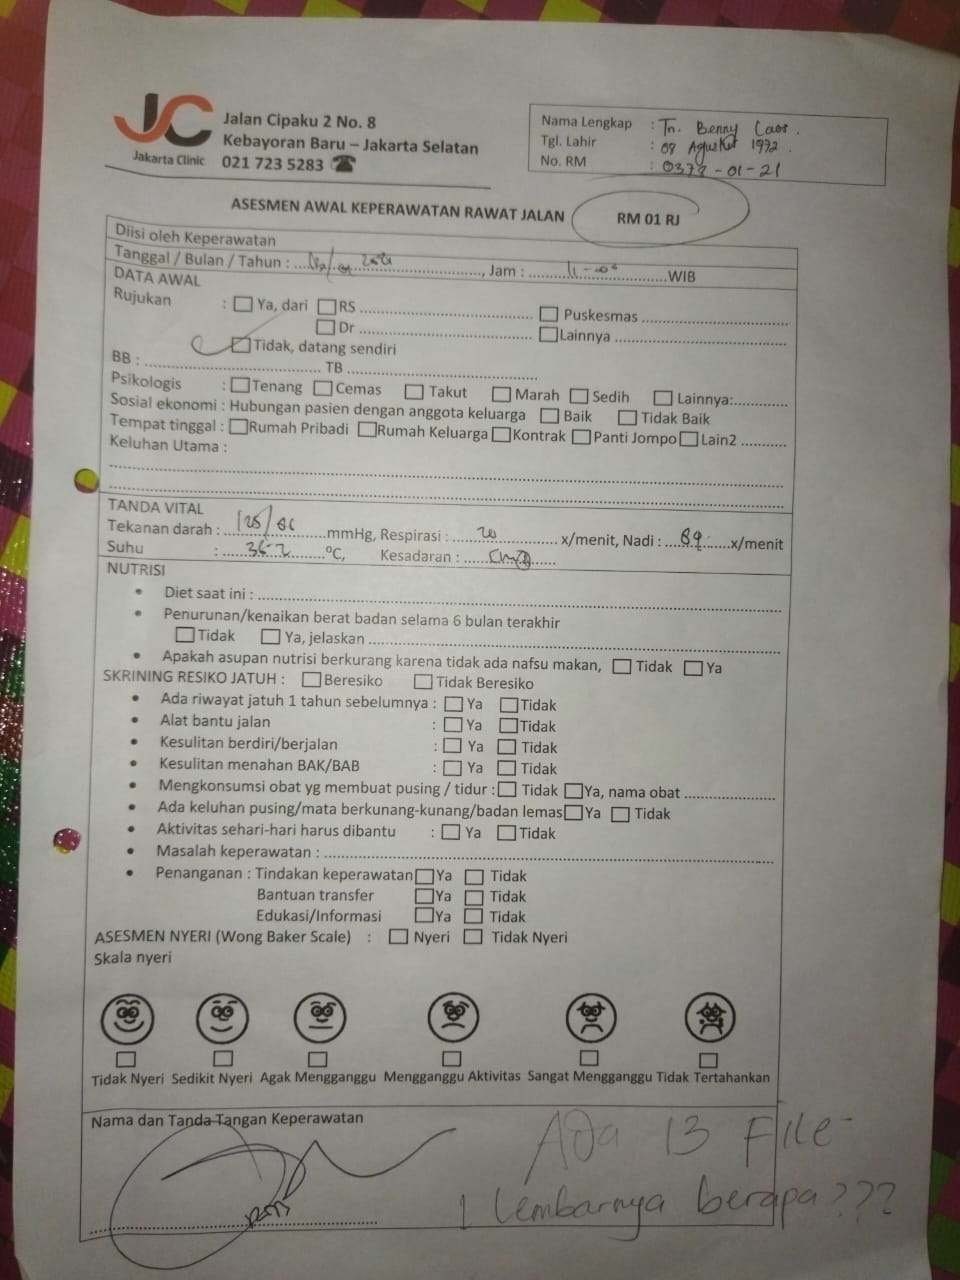 JC
Jakarta Clinic
Jalan Cipaku 2 No. 8
Kebayoran Baru – Jakarta Selatan
021 723 5283
Nama Lengkap : Tn. Benny
Tgl. Lahir : 08 Agustus 1972
No. RM : 0378-01-21
ASESMEN AWAL KEPERAWATAN RAWAT JALAN RM 01 RJ
Diisi oleh Keperawatan
Tanggal / Bulan / Tahun : , Jam : WIB
DATA AWAL
Rujukan : Ya, dari RS Puskesmas
Dr Lainnya
Tidak, datang sendiri
BB : TB
Psikologis : Tenang Cemas Takut Marah Sedih Lainnya:
Sosial ekonomi : Hubungan pasien dengan anggota keluarga Baik Tidak Baik
Tempat tinggal : Rumah Pribadi Rumah Keluarga Kontrak Panti Jompo Lain2
Keluhan Utama :
TANDA VITAL
Tekanan darah : 125/86 mmHg, Respirasi : 20 x/menit, Nadi : 89 x/menit
Suhu : 36.2 °C, Kesadaran :
NUTRISI
• Diet saat ini :
• Penurunan/kenaikan berat badan selama 6 bulan terakhir
Tidak Ya, jelaskan
• Apakah asupan nutrisi berkurang karena tidak ada nafsu makan, Tidak Ya
SKRINING RESIKO JATUH : Beresiko Tidak Beresiko
• Ada riwayat jatuh 1 tahun sebelumnya : Ya Tidak
• Alat bantu jalan : Ya Tidak
• Kesulitan berdiri/berjalan : Ya Tidak
• Kesulitan menahan BAK/BAB : Ya Tidak
• Mengkonsumsi obat yg membuat pusing / tidur : Tidak Ya, nama obat
• Ada keluhan pusing/mata berkunang-kunang/badan lemas Ya Tidak
• Aktivitas sehari-hari harus dibantu : Ya Tidak
• Masalah keperawatan :
• Penanganan : Tindakan keperawatan Ya Tidak
Bantuan transfer Ya Tidak
Edukasi/Informasi Ya Tidak
ASESMEN NYERI (Wong Baker Scale) : Nyeri Tidak Nyeri
Skala nyeri
Tidak Nyeri Sedikit Nyeri Agak Mengganggu Mengganggu Aktivitas Sangat Mengganggu Tidak Tertahankan
Nama dan Tanda Tangan Keperawatan
Ada 13 File
1 lembarnya berapa???